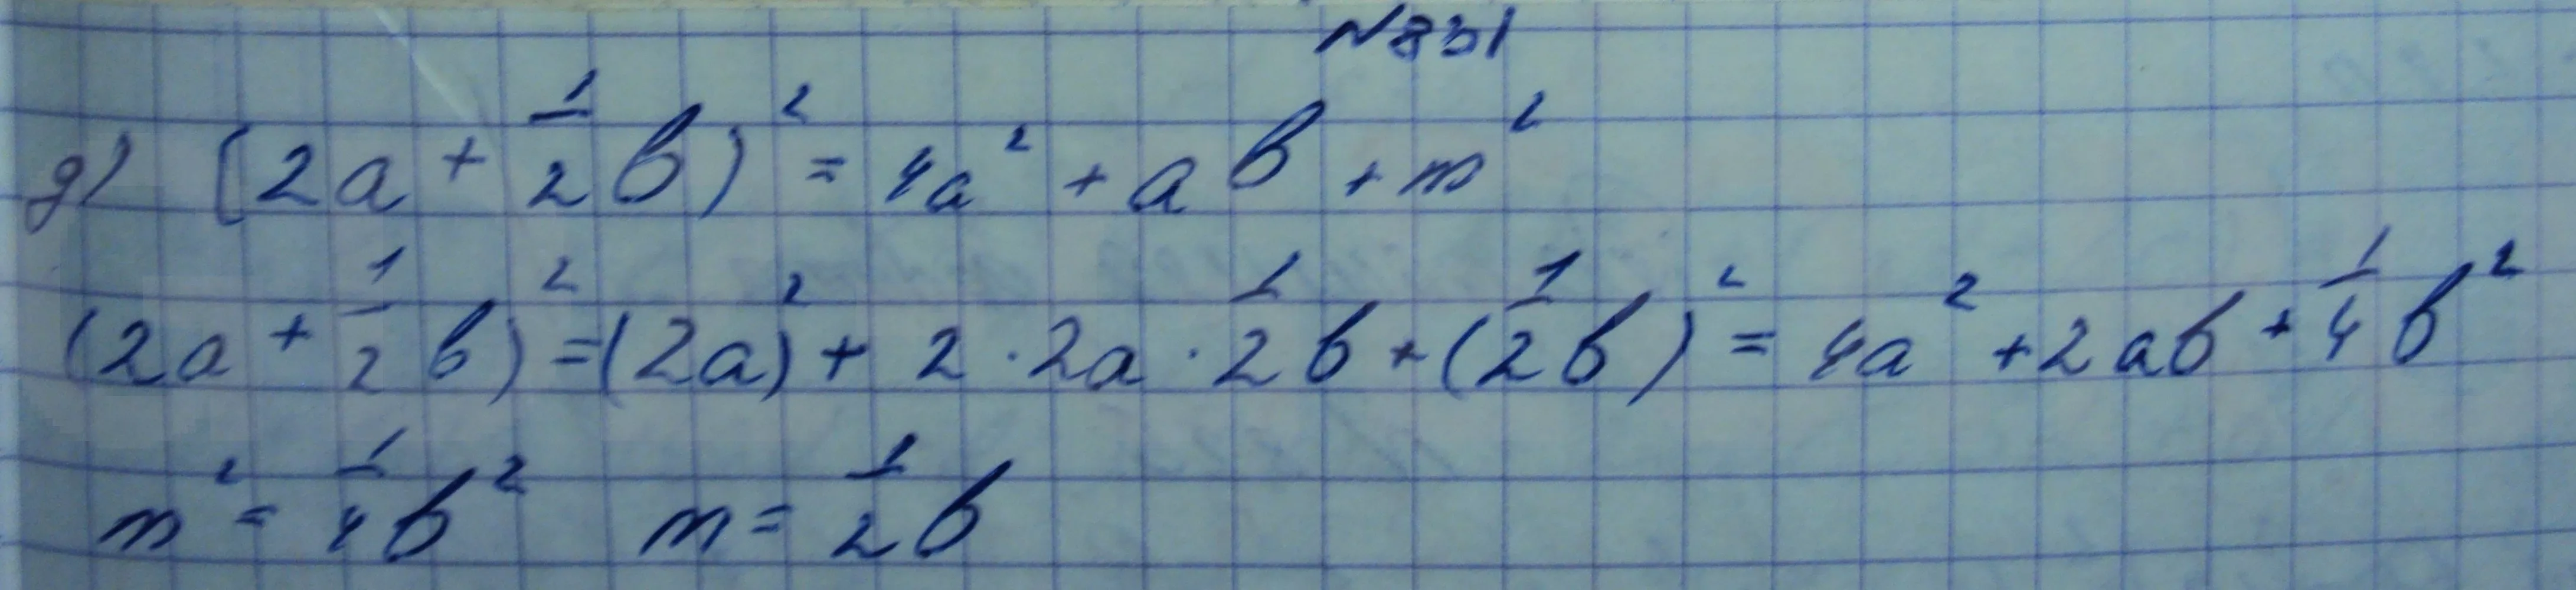 №831
д) (2a + 1/2 b)² = 4a² + ab + m²
(2a + 1/2 b)² = (2a)² + 2 · 2a · 1/2 b + (1/2 b)² = 4a² + 2ab + 1/4 b²
m² = 1/4 b² m = 1/2 b